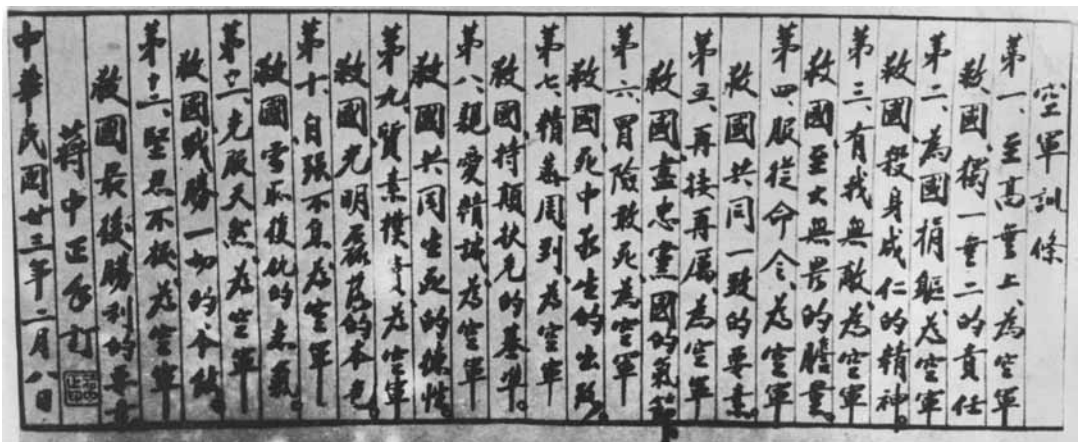 空軍訓條
第一、至高無上、為空軍
救國獨一無二的責任
第二、為國捐軀、為空軍
救國殺身成仁的精神。
第三、有我無敵、為空軍
救國至大無畏的膽量。
第四、服從命令、為空軍
救國共同一致的要素。
第五、再接再厲、為空軍
救國盡忠黨國的氣節
第六、冒險敢死、為空軍
救國死中求生的出路。
第七、精周到、為空軍
救國持顛扶危的基準。
第八、親愛精誠、為空軍
救國共同生死的德性。
第九、素樸、為空軍
救國光明磊落的本色。
第十、自强不息、為空軍
救國雪恥復仇的志氣。
第十一、克服天然、為空軍
救國戰勝一切的本能。
第十二、堅忍不拔、為空軍
救國最後勝利的要素
蔣中正手訂
中華民國廿三年二月八日